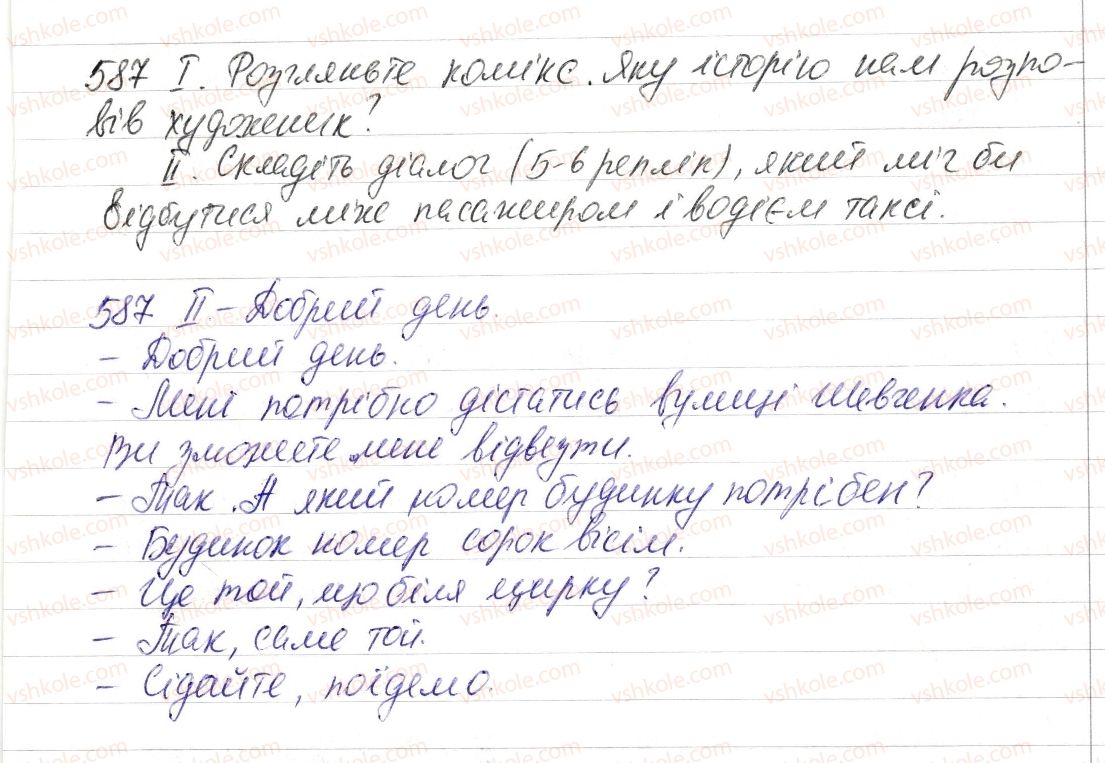 587 І. Розгляньте комікс. Яку історію нам розпо-
вів художник?
ІІ. Складіть діалог (5-6 реплік), який міг би
відбутися між пасажиром і водієм таксі.
587 ІІ. - Добрий день.
- Добрий день.
- Мені потрібно дістатись вулиці Шевченка.
Ви зможете мене відвезти.
- Так. А який номер будинку потрібен?
- Будинок номер сорок вісім.
- Це той, що біля цирку?
- Так, саме той.
- Сідайте, поїдемо.